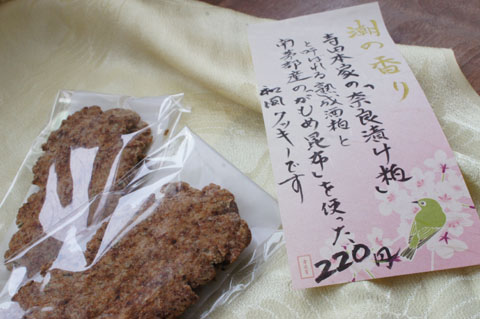 潮の香り
寺田本家の「奈良漬け粕」
と呼ばれる熟成酒粕と
南茅部産のがもめ昆布」を使った、
和風クッキーです
220円